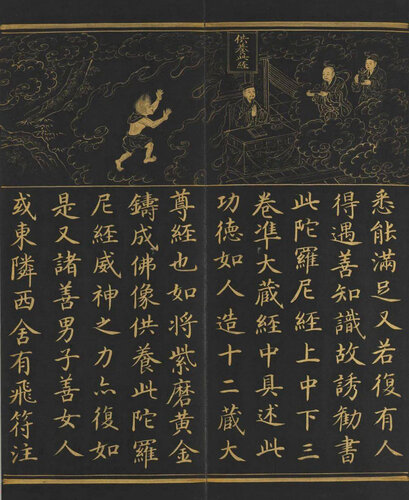 供養此經
悉能滿足又若復有人
得遇善知識故誘勸書
此陀羅尼經上中下三
卷準大藏經中具述此
功德如人造十二藏大
尊經也如將紫磨黃金
鑄成佛像供養此陀羅
尼經威神之力亦復如
是又諸善男子善女人
或東隣西舍有飛符注